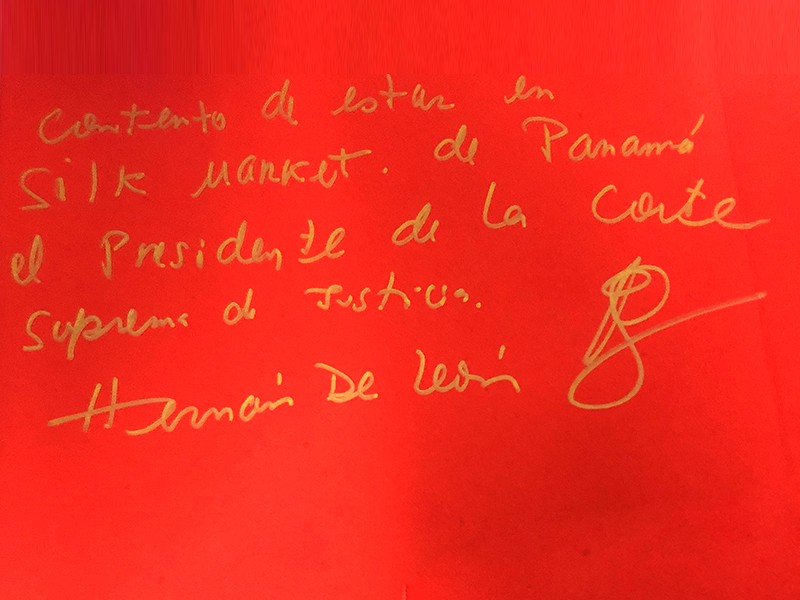 Contento de estar en
Silk Market. de Panamá
el Presidente de la Corte
Suprema de Justicia.
Hernán De León